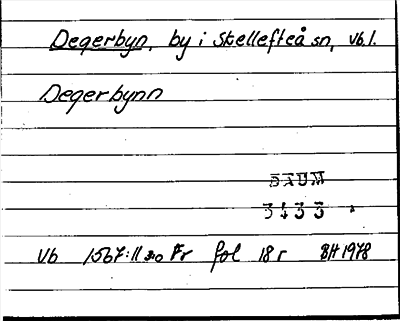 Degerbyn, by i Skellefteå sn, Vb.l.
Degerbynn
Vb 1567:11 Fr fol 18 r BH 1978